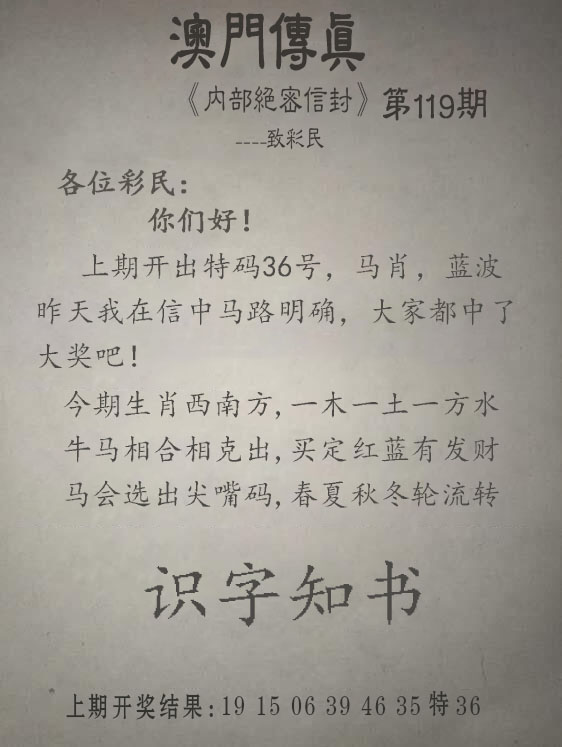 澳門傳眞
《内部絕密信封》第119期
----致彩民
各位彩民：
你们好！
上期开出特码36号，马肖，蓝波
昨天我在信中马路明确，大家都中了
大奖吧！
今期生肖西南方,一木一土一方水
牛马相合相克出,买定红蓝有发财
马会选出尖嘴码,春夏秋冬轮流转
识字知书
上期开奖结果:19 15 06 39 46 35 特 36